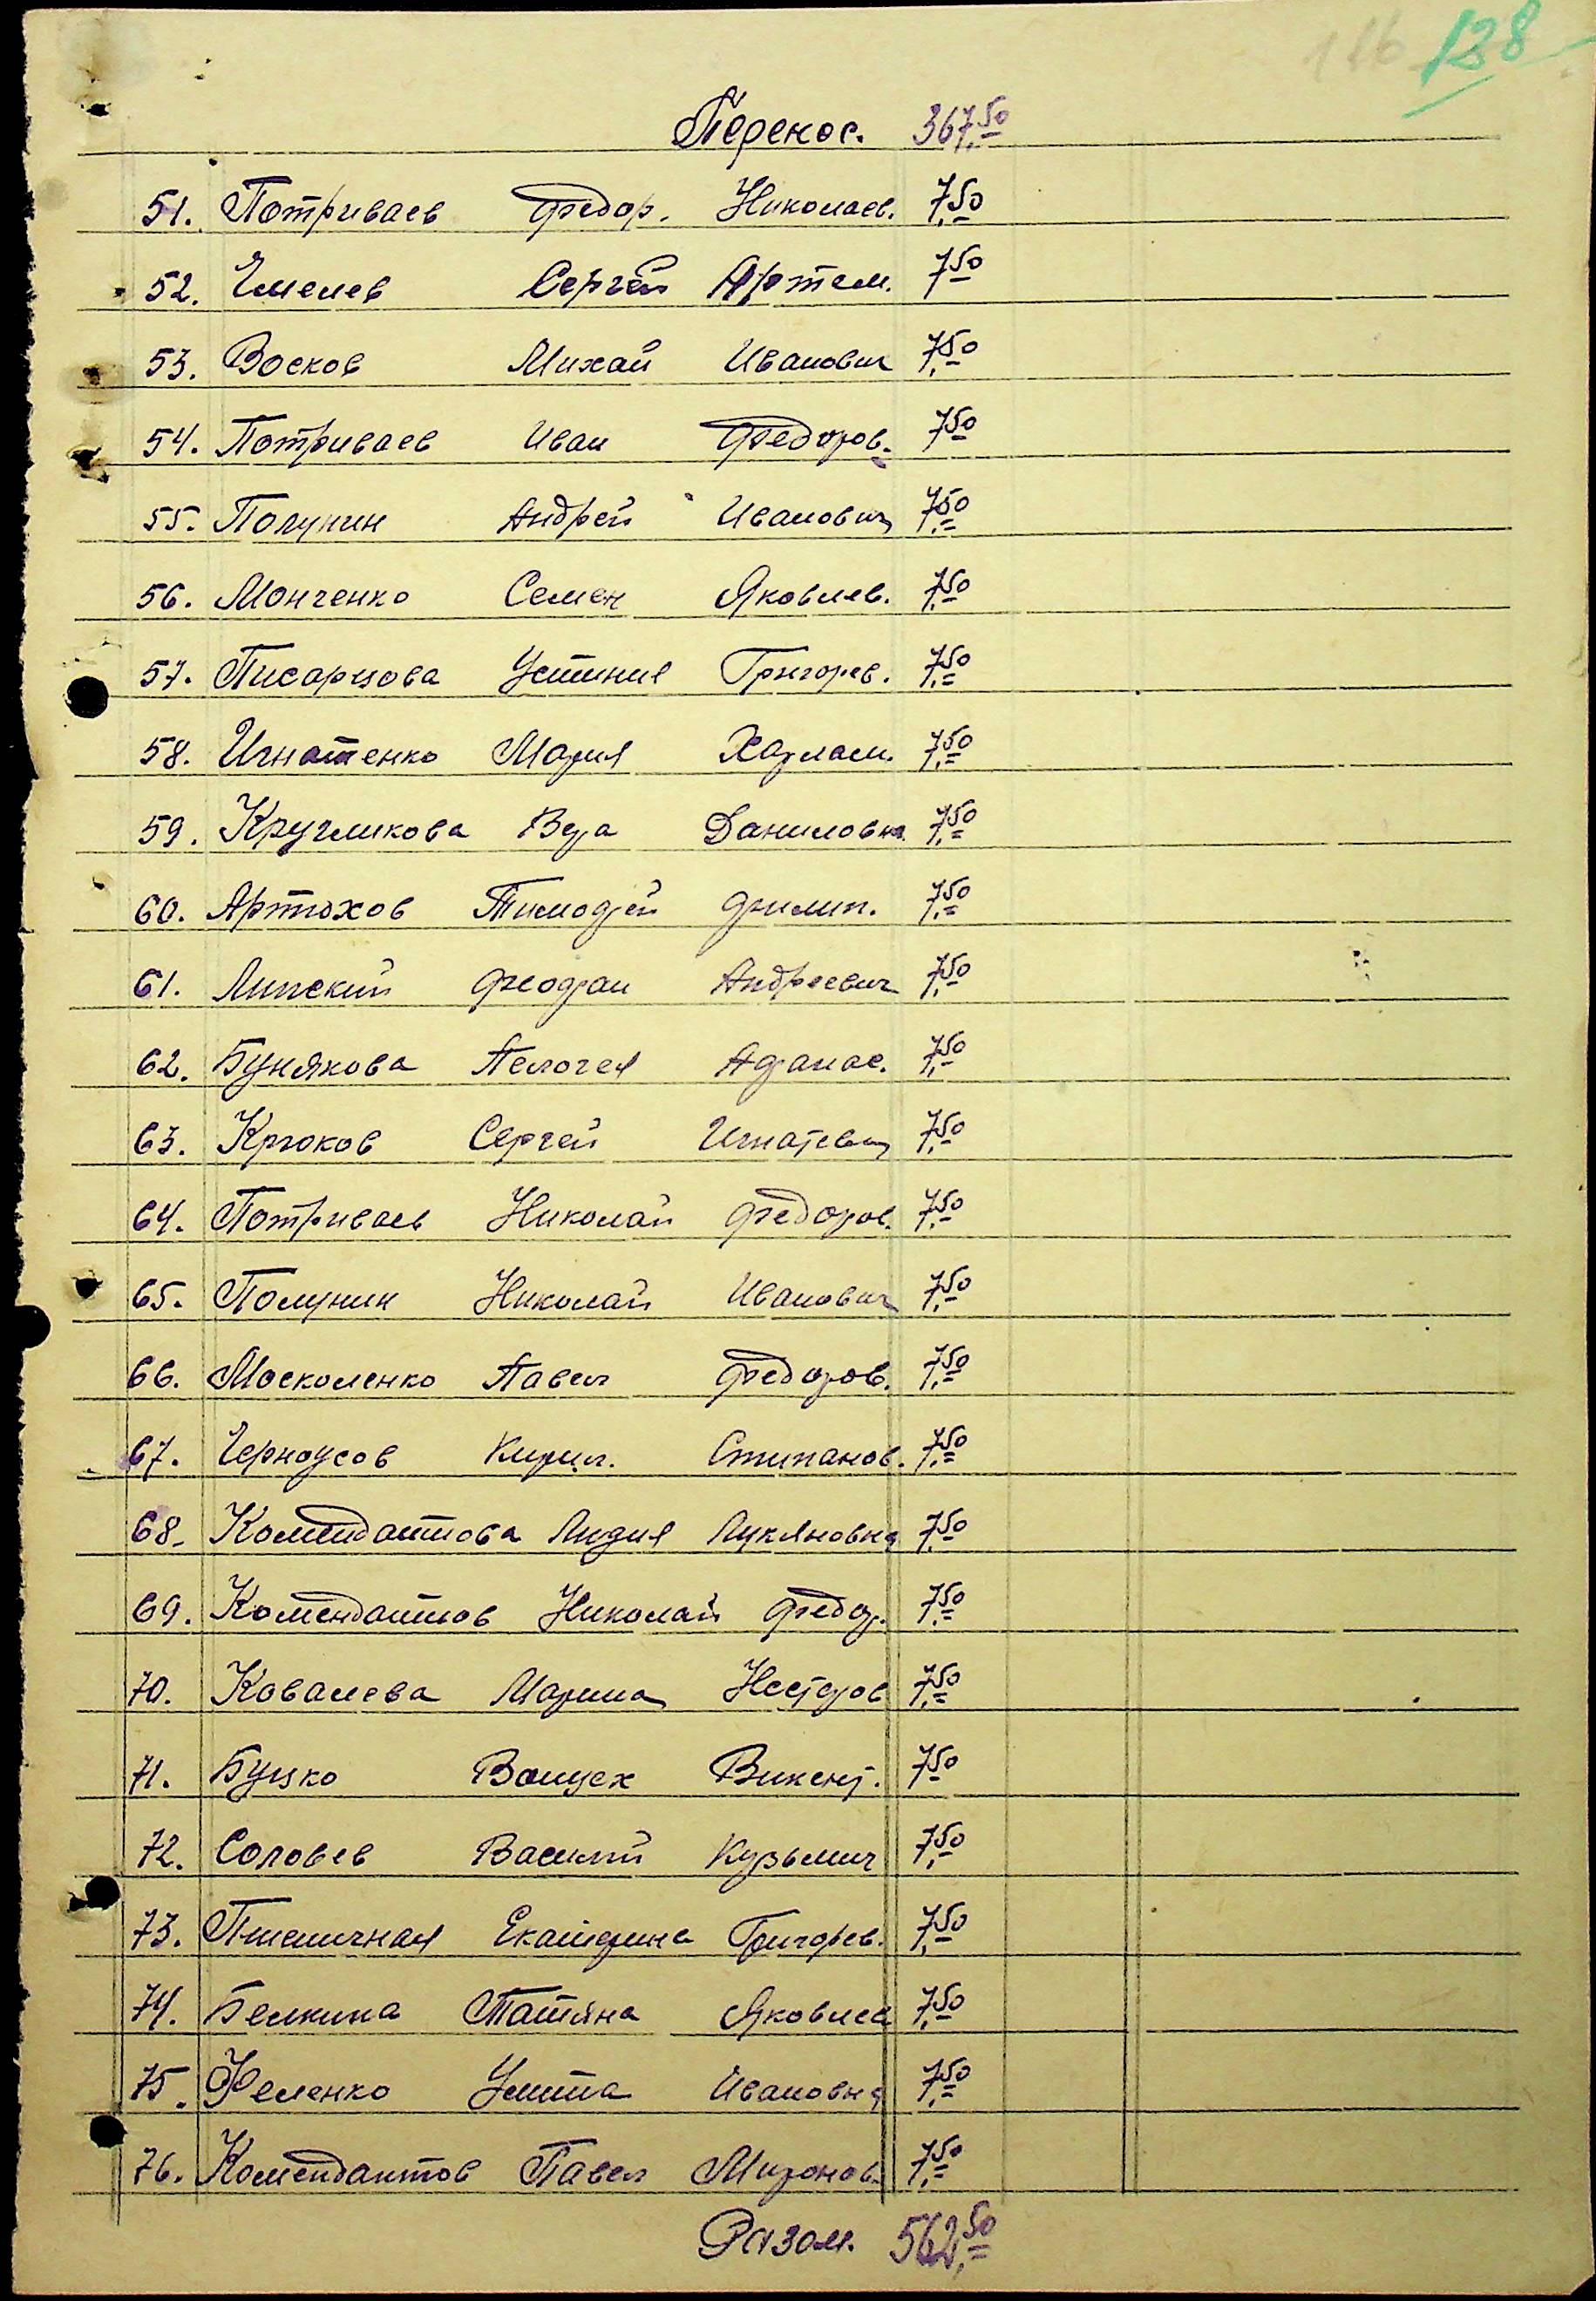 128
Перенос. 367,50
51. Потриваев Федор. Николаев. 7,50
52. Емелев Сергей Артем. 7,50
53. Восков Михай Иванович 7,50
54. Потриваев Иван Федоров. 7,50
55. Полунин Андрей Иванович 7,50
56. Монченко Семен Яковлев. 7,50
57. Писарцова Устиния Григорев. 7,50
58. Игнатенко Мария Харлам. 7,50
59. Кругликова Вера Даниловна 7,50
60. Артюхов Тимофей Филип. 7,50
61. Липский Феофан Андреевич 7,50
62. Бунякова Пелогея Афанас. 7,50
63. Крюков Сергей Игнатевич 7,50
64. Потриваев Николай Федоров. 7,50
65. Полунин Николай Иванович 7,50
66. Москоленко Павел Федоров. 7,50
67. Черноусов Кирил. Стипанов. 7,50
68. Комендантова Лидия Лукяновна 7,50
69. Комендантов Николай Федор. 7,50
70. Ковалева Марина Нестеров 7,50
71. Буцко Войцех Викент. 7,50
72. Соловев Василий Кузьмич 7,50
73. Пшеничная Екатерина Григорев. 7,50
74. Белкина Татяна Яковлев 7,50
75. Феленко Улита Ивановна 7,50
76. Комендантов Павел Миронов. 7,50
Разом. 562,50